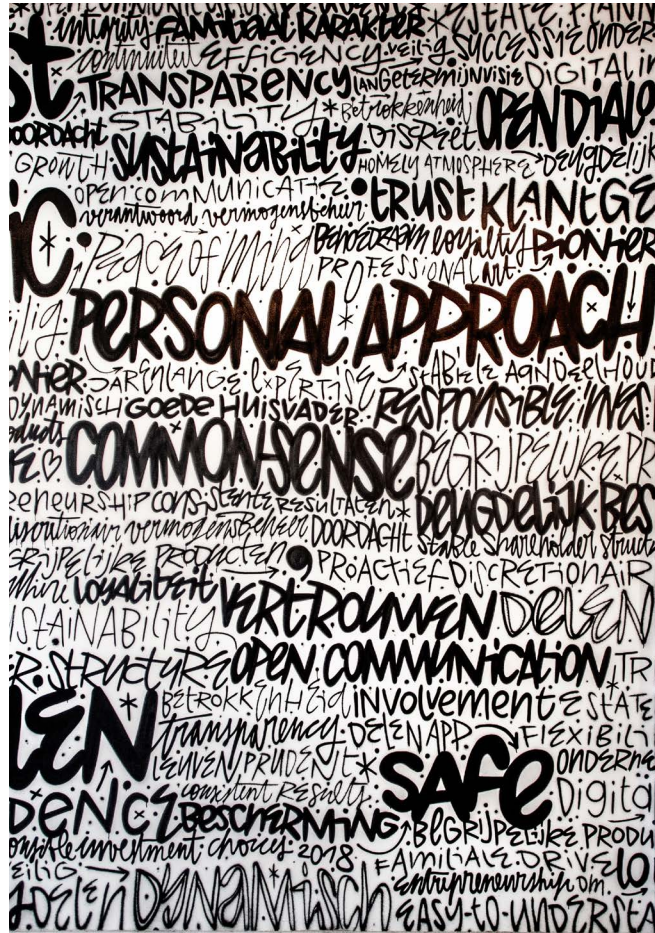 integrity FAMILIAAL KARAKTER * ESTAFE
continuïteit EFFICIENCY veilig SUCCESSIE ONDER
st TRANSPARENCY LANGETERMIJNVISIE DIGITAL
STABILITY * Betrokkenheid OPEN DIALO
DOORDACHT SUSTAINABILITY DISCREET
GROWTH HOMELY ATMOSPHERE DEUGDELIJK
OPEN COMMUNICATIE TRUST KLANTGE
verantwoord vermogensbeheer
ic * Peace of mind BEHOEDZAAM loyalty PIONIER
PROFESSIONAL
ilig PERSONAL * APPROACH
NIER JARENLANGE EXPERTISE STABIELE AANDEELHOU
DYNAMISCH GOEDE HUISVADER RESPONSIBLE INVES
ducts COMMON-SENSE BEGRIJPELIJKE PR
RENEURSHIP CONSISTENTE RESULTATEN * DEUGDELIJK BES
discretionair vermogensbeheer DOORDACHT stable shareholder struct
GRIJPELIJKE PRODUCTEN PROACTIEF DISCRETIONAIR
LOYALITEIT VERTROUWEN DELEN
USTAINABILITY
ER STRUCTURE OPEN COMMUNICATION TR
LEN * BETROKKENHEID INVOLVEMENT ESTATE
transparency DELEN APP FLEXIBILI
LEUVEN PRUDENT * SAFE ONDERNE
consistent Results Digita
DENCE BESCHERMING BEGRIJPELIJKE PRODU
onsible investment choices 2018 FAMILIALE DRIVE LO
EILIG entrepreneurship om
DELEN DYNAMISCH EASY-TO-UNDERSTA